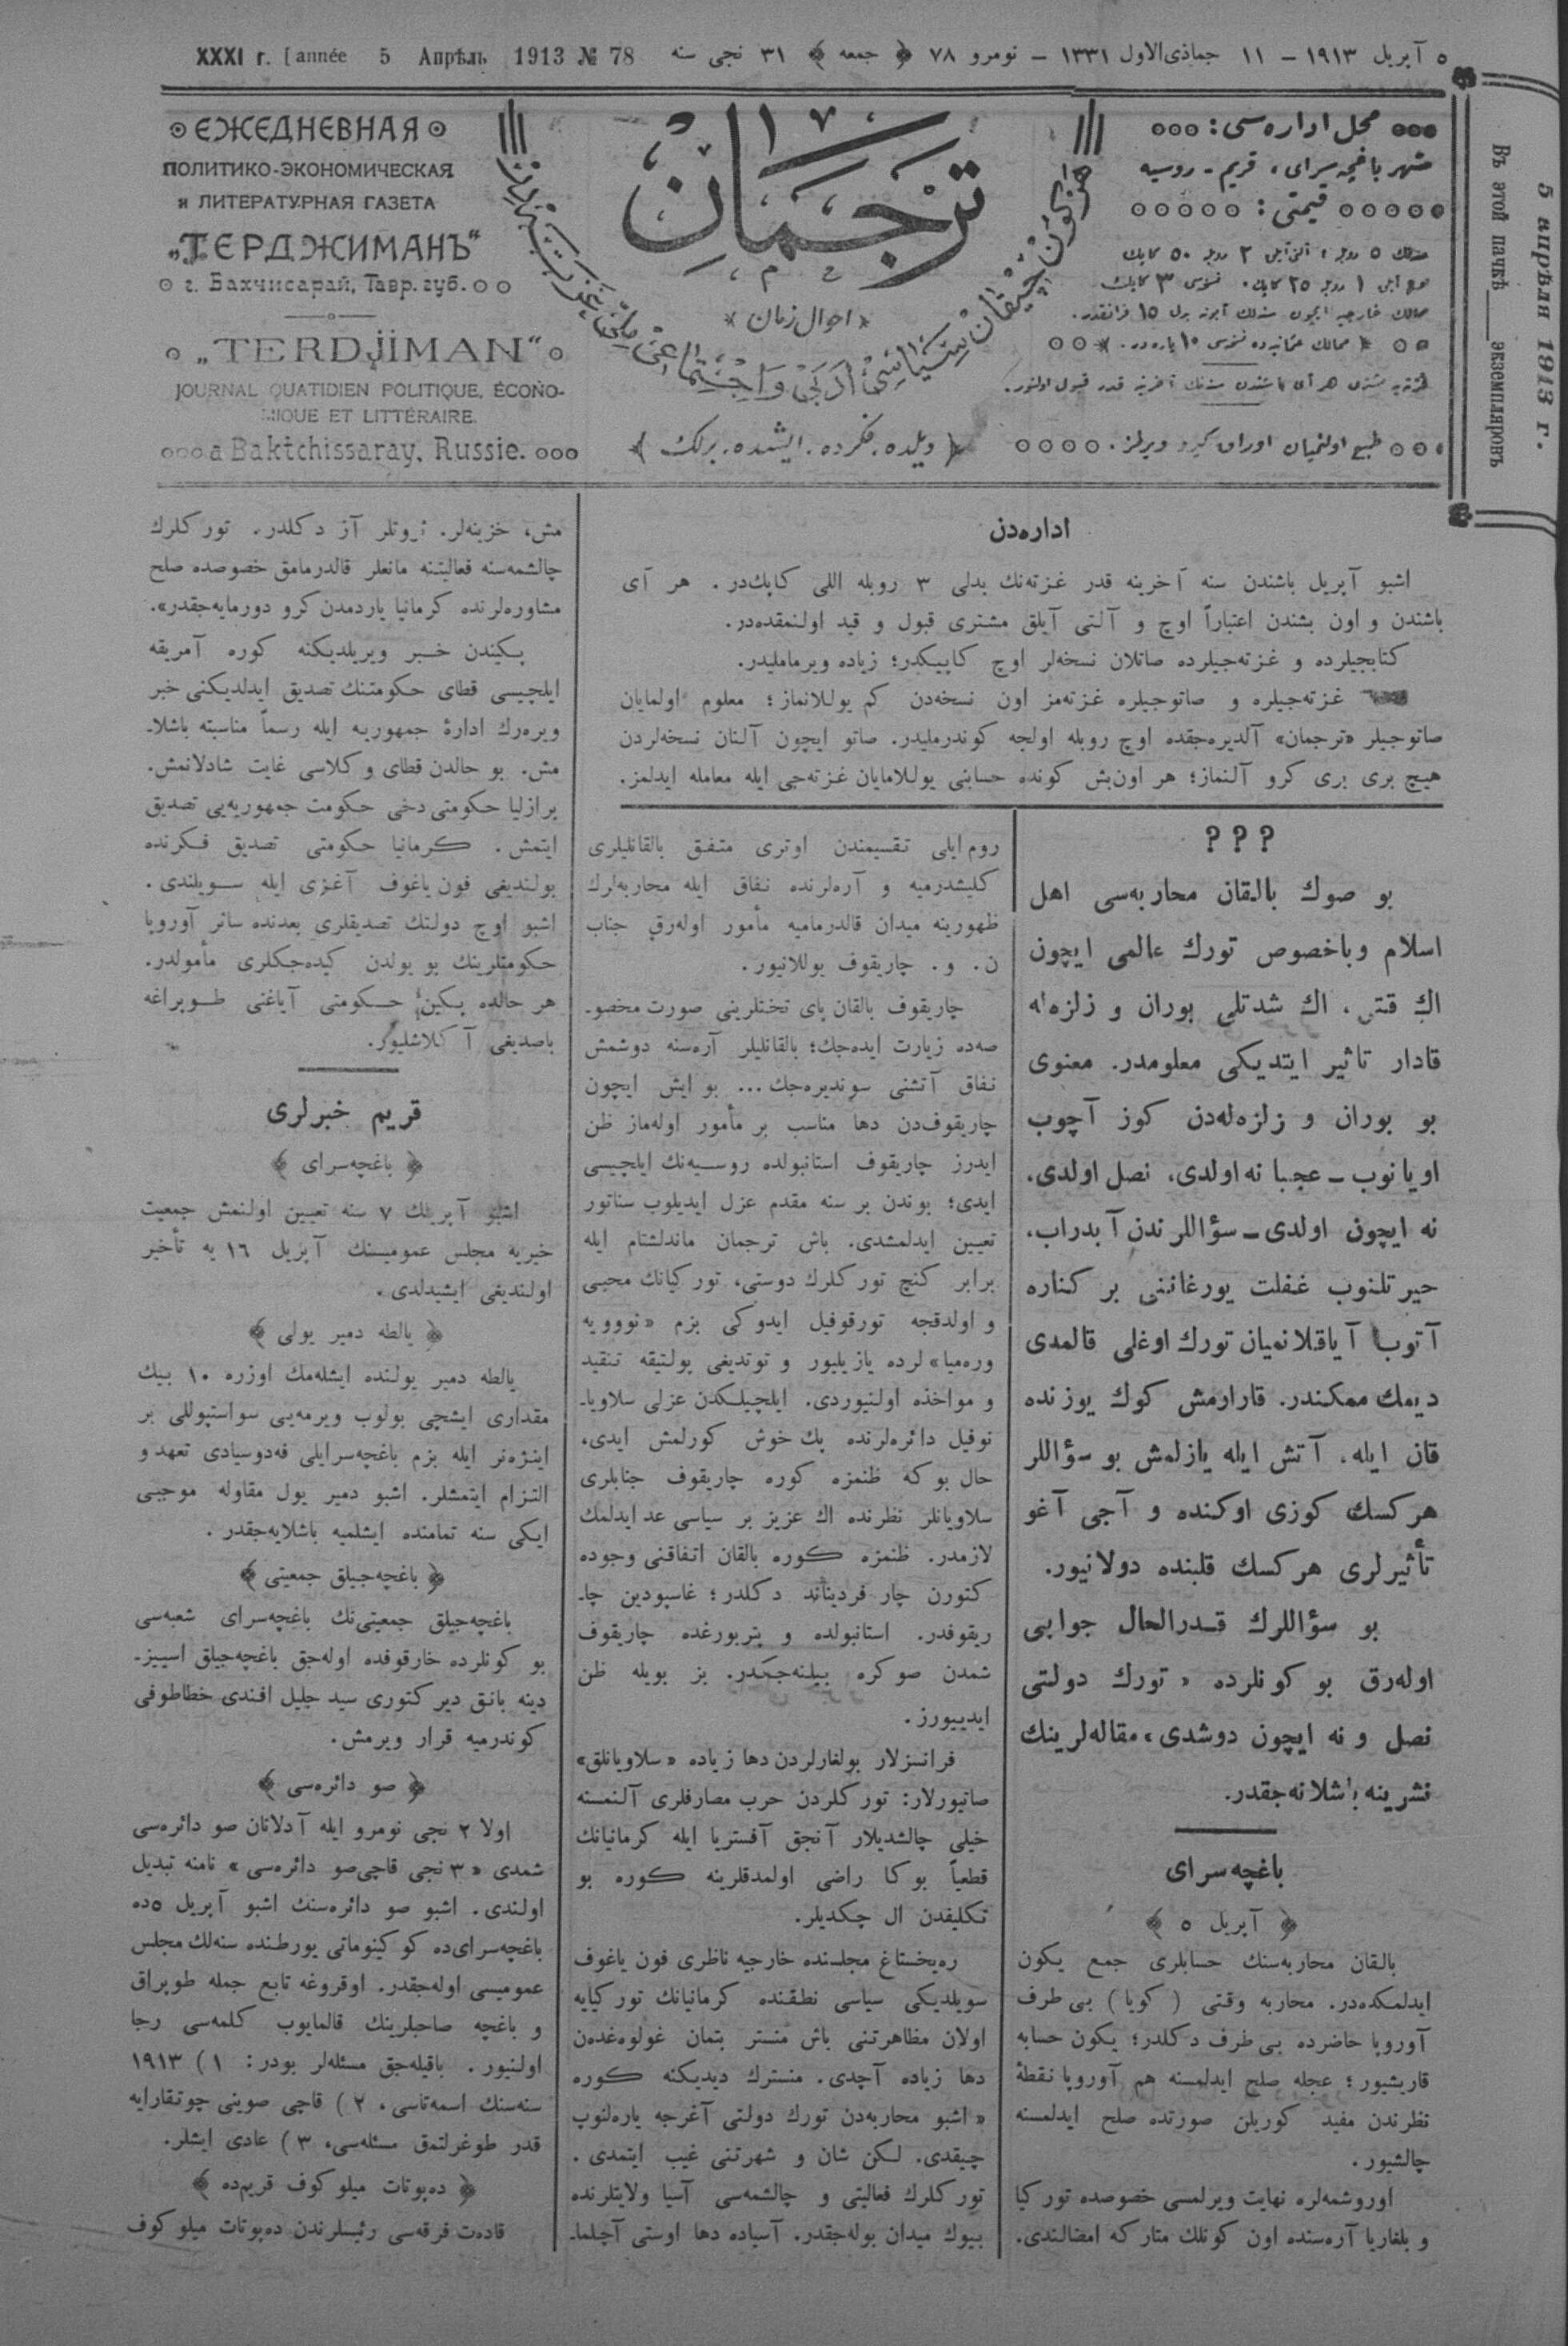 XXXI г. [année 5 Апрѣль 1913 № 78
۵ آپریل ۱۹۱۳ – ۱۱ جماذی‌الاول ۱۳۳۱ – نومرو ۷۸ ﴿ جمعه ﴾ ۳۱ نجی سنه
ЕЖЕДНЕВНАЯ
ПОЛИТИКО-ЭКОНОМИЧЕСКАЯ
и ЛИТЕРАТУРНАЯ ГАЗЕТА
„ТЕРДЖИМАНЪ“
г. Бахчисарай, Тавр. губ.
„TERDJIMAN“
JOURNAL QUATIDIEN POLITIQUE, ÉCONO-
MIQUE ET LITTÉRAIRE.
a Baktchissaray, Russie.
ترجمان
احوال زمان
﴿ ديلده، فكرده، ايشده، برلك ﴾
محل اداره‌سی:
شهر باغچه‌سرای، قريم ـ روسيه
قيمتی:
سنه‌لك ۵ روبله ، آلتی آيلق ۲ روبله ۵۰ كاپك
اوچ آيلق ۱ روبله ۲۵ كاپك. نسخه‌سی ۳ كاپك
ممالك خارجيه ايچون سنه‌لك آبونه بدل ۱۵ فرانقدر.
ممالك عثمانيه‌ده نسخه‌سی ۱۰ پاره‌در.
طبع اولنميان اوراق كيرو ويرلمز.
5 апрѣля 1913 г.
Въ этой пачкѣ ____ экземпляровъ
اداره‌دن
اشبو آپريل باشندن سنه آخرينه قدر غزته‌نك بدلی ۳ روبله اللی كاپك‌در. هر آی
باشندن و اون بشندن اعتباراً اوچ و آلتی آيلق مشتری قبول و قيد اولنمقده‌در.
كتابجيلرده و غزته‌جيلرده صاتلان نسخه‌لر اوچ كاپيكدر؛ زياده ويرماملیدر.
غزته‌جيلره و صاتوجيلره غزته‌مز اون نسخه‌دن كم يوللانماز؛ معلوم اولمايان
صاتوجيلر «ترجمان» آلديره‌جقده اوچ روبله اولجه كوندرمليدر. صاتو ايچون آلنان نسخه‌لردن
هيچ بری بری كرو آلنماز؛ هر اون‌بش كونده حسابنی يوللامايان غزته‌جی ايله معامله ايدلمز.
? ? ?
بو صوك بالقان محاربه‌سی اهل
اسلام وباخصوص تورك عالمی ايچون
اك قتی، اك شدتلی بوران و زلزله
قادار تاثير ايتديكی معلومدر. معنوی
بو بوران و زلزله‌دن كوز آچوب
اويانوب ـ عجبا نه اولدی، نصل اولدی،
نه ايچون اولدی ـ سؤاللرندن آبدراب،
حيرتلنوب غفلت يورغاننی بر كناره
آتوب آياقلانميان تورك اوغلی قالمدی
ديمك ممكندر. قارارمش كوك يوزنده
قان ايله، آتش ايله يازلمش بو سؤاللر
هركسك كوزی اوكنده و آجی آغو
تأثيرلری هركسك قلبنده دولانيور.
بو سؤاللرك قدرالحال جوابی
اوله‌رق بو كونلرده «تورك دولتی
نصل و نه ايچون دوشدی» مقاله‌لرينك
نشرينه باشلانه‌جقدر.
باغچه‌سرای
﴿ آپريل ۵ ﴾
بالقان محاربه‌سنك حسابلری جمع يكون
ايدلمكده‌در. محاربه وقتی (كويا) بی طرف
آوروپا حاضرده بی طرف دكلدر؛ يكون حسابه
قاريشيور؛ عجله صلح ايدلمسنه هم آوروپا نقطهٔ
نظرندن مفيد كوريلن صورتده صلح ايدلمسنه
چالشيور.
اوروشمه‌لره نهايت ويرلمسی خصوصده توركيا
و بلغاريا آره‌سنده اون كونلك متاركه امضالندی.
روم‌ايلی تقسيمندن اوتری متفق بالقانليلری
كليشدرميه و آره‌لرنده نفاق ايله محاربه‌لرك
ظهورينه ميدان قالدرماميه مأمور اوله‌رق جناب
ن. و. چاريقوف يوللانيور.
چاريقوف بالقان پای تختلرينی صورت مخصو-
صه‌ده زيارت ايده‌جك؛ بالقانليلر آره‌سنه دوشمش
نفاق آتشنی سونديره‌جك... بو ايش ايچون
چاريقوف‌دن دها مناسب بر مأمور اوله‌ماز ظن
ايدرز چاريقوف استانبولده روسيه‌نك ايلچيسی
ايدی؛ بوندن بر سنه مقدم عزل ايديلوب سناتور
تعيين ايدلمشدی. باش ترجمان ماندلشتام ايله
برابر كنج توركلرك دوستی، توركيانك محبی
و اولدقجه تورقوفيل ايدوكی بزم «نوويه
وره‌ميا»لرده يازيليور و توتديغی پولتيقه تنقيد
و مواخذه اولنيوردی. ايلچيلكدن عزلی سلاويا-
نوفيل دائره‌لرنده پك خوش كورلمش ايدی،
حال بوكه ظنمزه كوره چاريقوف جنابلری
سلاويانلر نظرنده اك عزيز بر سياسی عد ايدلمك
لازمدر. ظنمزه كوره بالقان اتفاقنی وجوده
كتورن چار فرديناند دكلدر؛ غاسپودين چا-
ريقوفدر. استانبولده و پتربورغده چاريقوف
شمدن صوكره بيلنه‌جكدر. بز بويله ظن
ايدييورز.
فرانسزلار بولغارلردن دها زياده «سلاويانلق»
صاتيورلار: توركلردن حرب مصارفلری آلنمسنه
خيلی چالشديلار آنجق آفستريا ايله كرمانيانك
قطعياً بوكا راضی اولمدقلرينه كوره بو
تكليفدن ال چكديلر.
ره‌يخستاغ مجلسنده خارجيه ناظری فون ياغوف
سويلديكی سياسی نطقنده كرمانيانك توركيايه
اولان مظاهرتنی باش منستر بتمان غولوه‌غدن
دها زياده آچدی. منسترك ديديكنه كوره
«اشبو محاربه‌دن تورك دولتی آغرجه ياره‌لنوب
چيقدی. لكن شان و شهرتنی غيب ايتمدی.
توركلرك فعاليتی و چالشمه‌سی آسيا ولايتلرنده
بيوك ميدان بوله‌جقدر. آسياده دها اوستی آچلما-
مش، خزينه‌لر، ثروتلر آز دكلدر. توركلرك
چالشمه‌سنه فعاليتنه مانعلر قالدرمامق خصوصده صلح
مشاوره‌لرنده كرمانيا ياردمدن كرو دورمايه‌جقدر».
پكيندن خبر ويريلديكنه كوره آمريقه
ايلچيسی قطای حكومتنك تصديق ايدلديكنی خبر
ويره‌رك ادارهٔ جمهوريه ايله رسماً مناسبته باشلا-
مش. بو حالدن قطای وكلاسی غايت شادلانمش.
برازليا حكومتی دخی حكومت جمهوريه‌يی تصديق
ايتمش. كرمانيا حكومتی تصديق فكرنده
بولنديغی فون ياغوف آغزی ايله سويلندی.
اشبو اوچ دولتك تصديقلری بعدنده سائر آوروپا
حكومتلرينك بو يولدن كيده‌جكلری مأمولدر.
هر حالده پكين حكومتی آياغنی طوپراغه
باصديغی آكلاشليور.
قريم خبرلری
﴿ باغچه‌سرای ﴾
اشبو آپريلك ۷ سنه تعيين اولنمش جمعيت
خيريه مجلس عموميسنك آپريل ۱۶ يه تأخير
اولنديغی ايشيدلدی.
﴿ يالطه دمير يولی ﴾
يالطه دمير يولنده ايشله‌مك اوزره ۱۰ بيك
مقداری ايشچی بولوب ويرمه‌يی سواستپوللی بر
اينژه‌نر ايله بزم باغچه‌سرايلی فه‌دوسيادی تعهد و
التزام ايتمشلر. اشبو دمير يول مقاوله موجبی
ايكی سنه تمامنده ايشلميه باشلايه‌جقدر.
﴿ باغچه‌جيلق جمعيتی ﴾
باغچه‌جيلق جمعيتی‌نك باغچه‌سرای شعبه‌سی
بو كونلرده خارقوفده اوله‌جق باغچه‌جيلق اسييز-
دينه بانق ديركتوری سيد جليل افندی خطاطوفی
كوندرميه قرار ويرمش.
﴿ صو دائره‌سی ﴾
اولا ۲ نجی نومرو ايله آدلانان صو دائره‌سی
شمدی «۳ نجی قاچی‌صو دائره‌سی» نامنه تبديل
اولندی. اشبو صو دائره‌سنك اشبو آپريل ۵ده
باغچه‌سرای‌ده كوكينوماتی يورطنده سنه‌لك مجلس
عموميسی اوله‌جقدر. اوقروغه تابع جمله طوپراق
و باغچه صاحبلرينك قالمايوب كلمه‌سی رجا
اولنيور. باقيله‌جق مسئله‌لر بودر: ۱) ۱۹۱۳
سنه‌سنك اسمه‌تاسی، ۲) قاچی صوينی چوتقارايه
قدر طوغرلتمق مسئله‌سی، ۳) عادی ايشلر.
﴿ ده‌پوتات ميلوكوف قريم‌ده ﴾
قادەت فرقه‌سی رئيسلرندن ده‌پوتات ميلوكوف